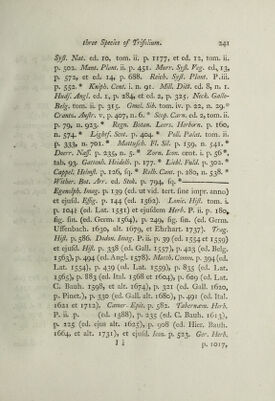 three Species of Trifolium. 241
Syst. Nat. ed. 10, tom. ii. p. 1177, et ed. 12, tom. ii.
p. 502. Mant. Plant. ii. p. 451. Murr. Syst. Veg. ed. 13,
p. 572, et ed. 14, p. 688. Reich. Syst. Plant. P. iii.
p. 552. * Kniph. Cent. i. n. 91. Mill. Dict. ed. 8, n. 1.
Huds. Angl. ed. 1, p. 284, et ed. 2, p. 325. Neck. Gallo-
Belg. tom. ii. p. 315. Gmel. Sib. tom. iv. p. 22, n. 29.*
Crantz. Austr. v. p. 407, n. 6. * Scop. Carn. ed. 2, tom. ii.
p. 79, n. 923. * Regn. Botan. Leers. Herborn. p. 160,
n. 574. * Lightf. Scot. p. 404. * Poll. Palat. tom. ii.
p. 333, n. 701. * Mattusch. Fl. Sil. p. 159, n. 541.*
Doerr. Nass. p. 235, n. 5. * Zorn. Icon. cent. i. p. 56 *,
tab. 93. Gattenh. Heidelb. p. 177. * Liebl. Fuld. p. 302. *
Cappel. Helmst. p. 126, f. 4. * Relh. Cant. p. 280, n. 538. *
Wieber. Bot. Arr. ed. Stok. p. 794, f. 4.*
Egenolph. Imag. p. 139 (ed. ut vid. tert. sine impr. anno)
et ejusd. Effig. p. 144 (ed. 1562). Lonic. Hist. tom. i.
p. 1041 (ed. Lat. 1551) et ejusdem Herb. P. ii. p. 180,
fig. sin. (ed. Germ. 1564), p. 249, fig. sin. (ed. Germ.
Uffenbach. 1630, alt. 1679, et Ehrhart. 1737). Trag.
Hist. p. 586. Dodon. Imag. P. ii. p. 39 (ed. 1554 et 1559)
et ejusd. Hist. p. 358 (ed. Gall. 1557), p. 423 (ed. Belg.
1563), p. 494 (ed. Angl. 1578). Matth. Comm. p. 394 (ed.
Lat. 1554), p. 439 (ed. Lat. 1559), p. 835 (ed. Lat.
1565), p. 883 (ed. Ital. 1568 et 1604), p. 609 (ed. Lat.
C. Bauh. 1598, et alt. 1674), p. 321 (ed. Gall. 1620,
p. Pinet.), p. 330 (ed. Gall. alt. 1680), p. 491 (ed. Ital.
1621 et 1712). Camer. Epit. p. 582. Tabernæm. Herb.
P. ii. p. (ed. 1588), p. 235 (ed. C. Bauh. 1613),
p. 225 (ed. ejus alt. 1625), p. 908 (ed. Hier. Bauh.
1664, et alt. 1731), et ejusd. Icon. p. 523. Ger. Herb.
I i p. 1017,